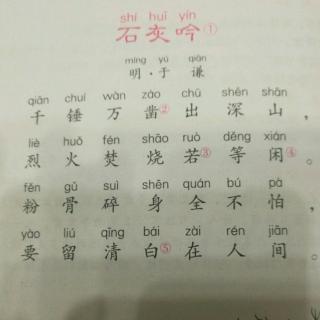 shí huī yín
石灰吟①
míng yú qiān
明·于谦
qiān chuí wàn záo chū shēn shān
千锤万凿②出深山，
liè huǒ fén shāo ruò děng xián
烈火焚烧若③等闲④。
fěn gǔ suì shēn quán bú pà
粉骨碎身全不怕，
yào liú qīng bái zài rén jiān
要留清白⑤在人间。